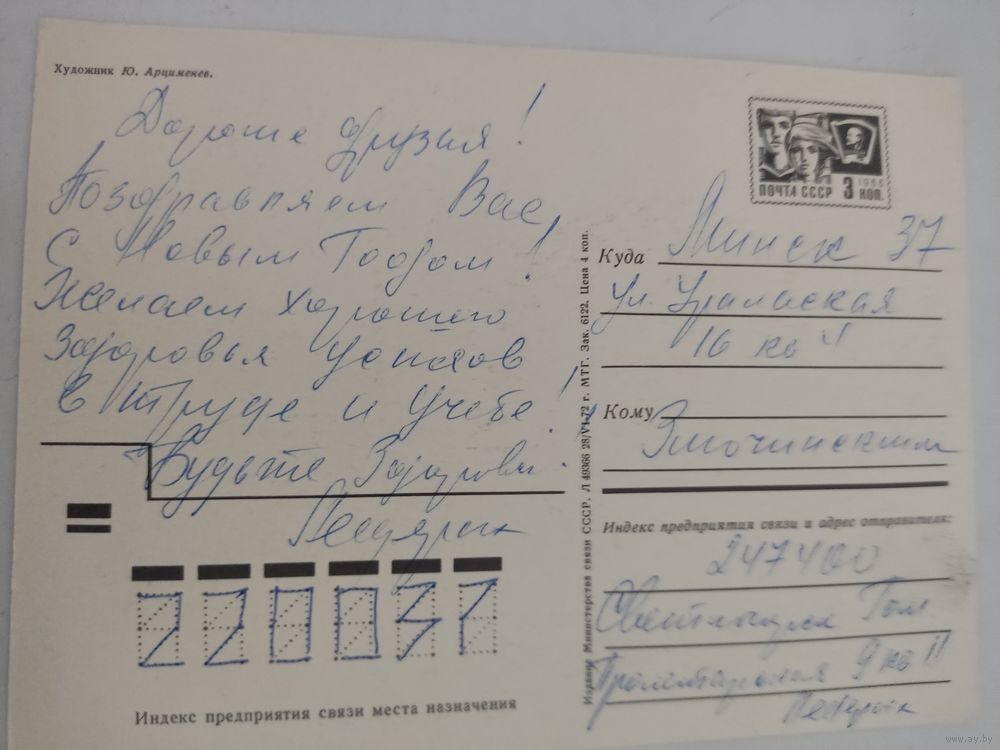 Художник Ю. Арцименев.
Дорогие друзья!
Поздравляем Вас
с Новым Годом!
Желаем хорошего
Здоровья успехов
в труде и учебе!
Будьте Здоровы!
220037
Индекс предприятия связи места назначения
Издание Министерства связи СССР. Л 49366 28/VI-72 г. МТГ. Зак. 6122. Цена 4 коп.
ПОЧТА СССР 3 КОП.
1966
Куда Минск 37
ул. Уральская
16 кв 11
Кому
Индекс предприятия связи и адрес отправителя:
247400
Светлогорск Гом
Пролетарская 9 кв 11
www.ay.by